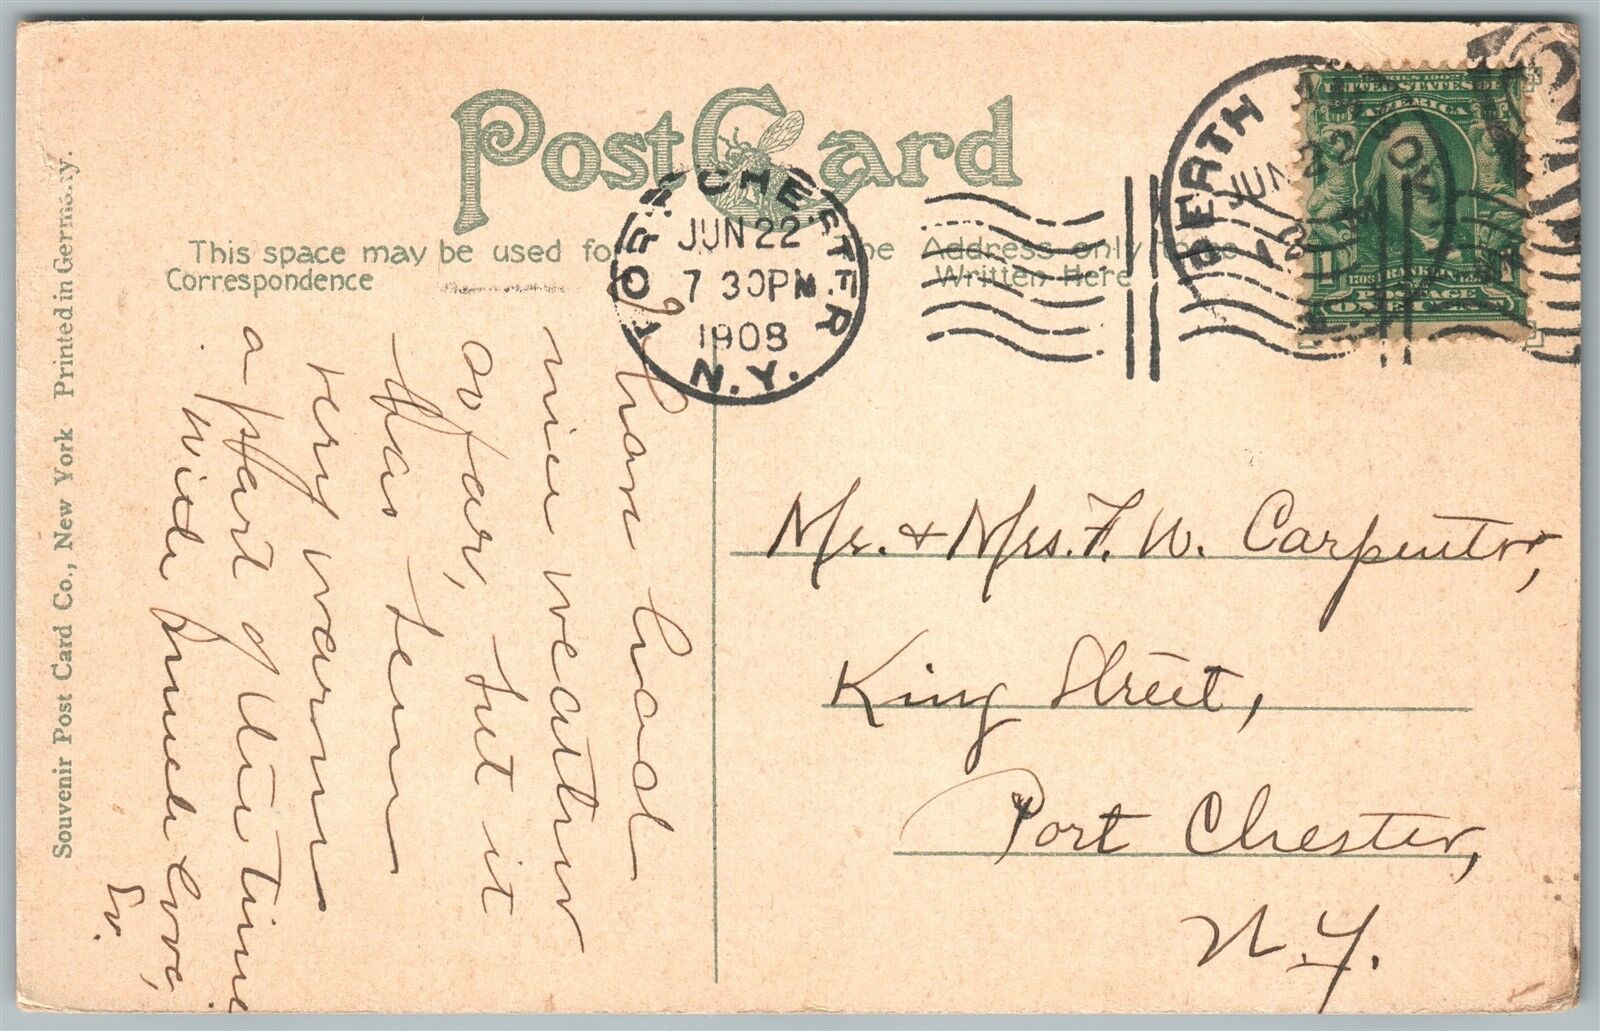 PostCard
This space may be used for
Correspondence
the Address only to be
Written Here
PORT CHESTER
JUN 22
7 30PM
1908
N.Y.
PERTH
JUN 22
SERIES 1902
UNITED STATES OF
AMERICA
FRANKLIN
POSTAGE
ONE CENT
Have had
nice weather
so far, but it
has been
very warm
a part of the time.
With much love,
Ev.
Mr. & Mrs. F. W. Carpenter,
King Street,
Port Chester,
N.Y.
Souvenir Post Card Co., New York Printed in Germany.